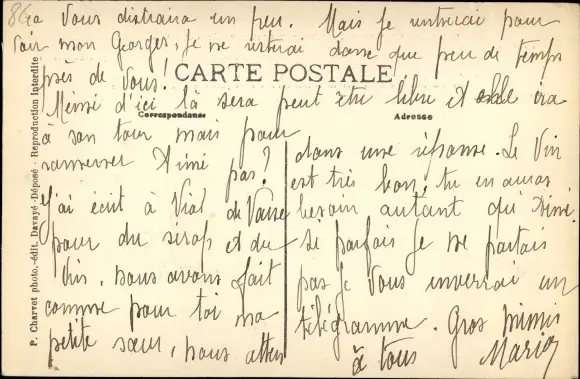 86
Ça vous distraira un peu. Mais je rentrerai pour
voir mon Georges, je ne resterai donc que peu de temps
près de vous!
CARTE POSTALE
Mémé d'ici là sera peut être libre et elle ira
Correspondance
Adresse
à son tour mais pour
ramener Aimé pas?
J'ai écrit à Vial de Vaise
pour du sirop et du
Vin, nous avons fait
comme pour toi ma
petite sœur, nous atten
dans une réponse. Le Vin
est très bon, tu en auras
besoin autant qu'Aimé.
Si parfois je ne partais
pas je vous enverrai un
télégramme. Gros mimis
à tous
Maria
P. Charret photo.-édit. Davayé - Déposé - Reproduction Interdite